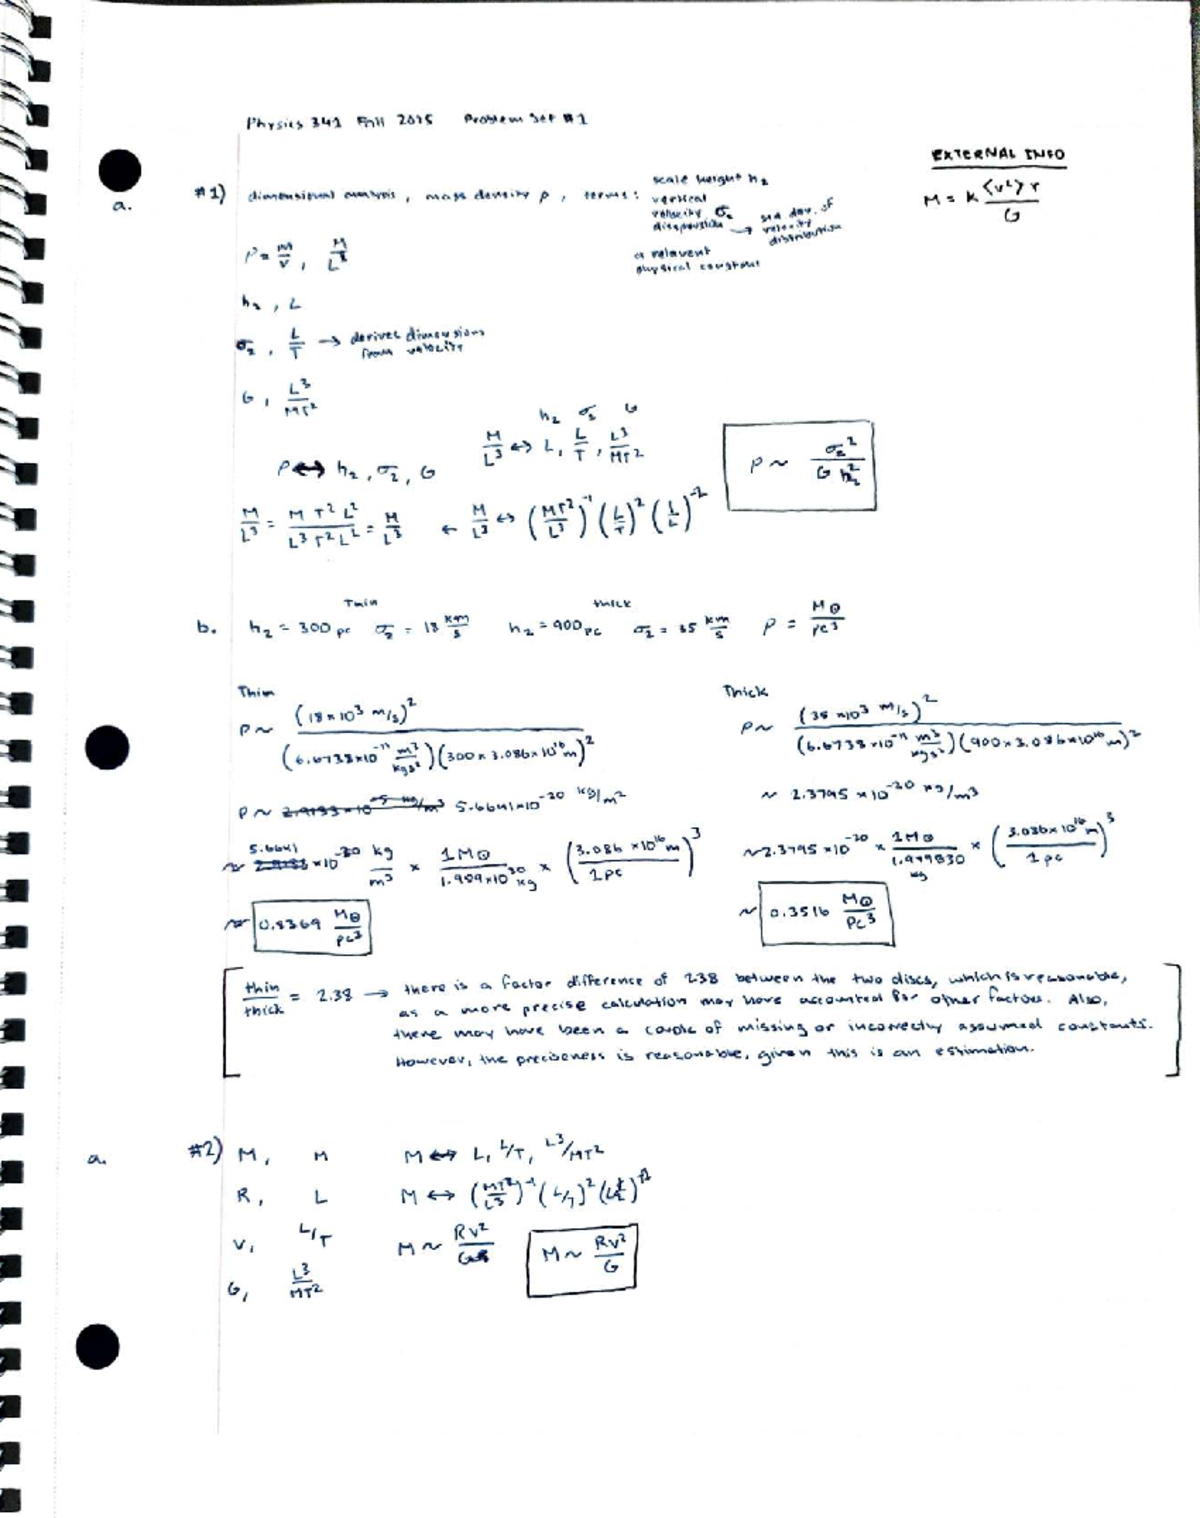 Physics 341 Fall 2015 Problem Set #1
EXTERNAL INFO
M = k <v²> r / G
a. #1) dimensional analysis, mass density ρ, terms: scale height h_z
vertical velocity σ_z dispersion → std dev. of velocity distribution
a relavent physical constant
ρ = m/V, M/L³
h_z, L
σ_z, L/T → derives dimensions from velocity
G, L³/MT²
h_z σ_z G
ρ ↔ h_z, σ_z, G M/L³ ↔ L, L/T, L³/MT² ρ ~ σ_z² / G h_z²
M/L³ = M T² L² / L³ T² L² = M/L³ ← M/L³ ↔ (MT²/L³)⁻¹ (L/T)² (L/L)⁻²
Thin thick
b. h_z = 300 pc σ_z = 18 km/s h_z = 900 pc σ_z = 35 km/s ρ = M⊙/pc³
Thin
ρ ~ (18×10³ m/s)² / (6.6738×10⁻¹¹ m³/kgs²)(300×3.086×10¹⁶ m)²
ρ ~ 5.6641×10⁻²⁰ kg/m²
5.6641
~ ×10⁻²⁰ kg/m³ × 1M⊙/1.989×10³⁰ kg × (3.086×10¹⁶ m/1pc)³
~ 0.8369 M⊙/pc³
Thick
ρ ~ (35×10³ m/s)² / (6.6738×10⁻¹¹ m³/kgs²)(900×3.086×10¹⁶ m)²
~ 2.3795×10⁻²⁰ kg/m³
~ 2.3795×10⁻²⁰ × 1M⊙/1.989E30 kg × (3.086×10¹⁶ m/1pc)³
~ 0.3516 M⊙/pc³
thin/thick = 2.38 → there is a factor difference of 2.38 between the two discs, which is reasonable,
as a more precise calculation may have accounted for other factors. Also,
there may have been a couple of missing or incorrectly assumed constants.
However, the preciseness is reasonable, given this is an estimation.
a. #2) M, M M ↔ L, L/T, L³/MT²
R, L M ↔ (MT²/L³)⁻¹ (L/T)²
V, L/T M ~ RV²/G M ~ RV²/G
G, L³/MT²